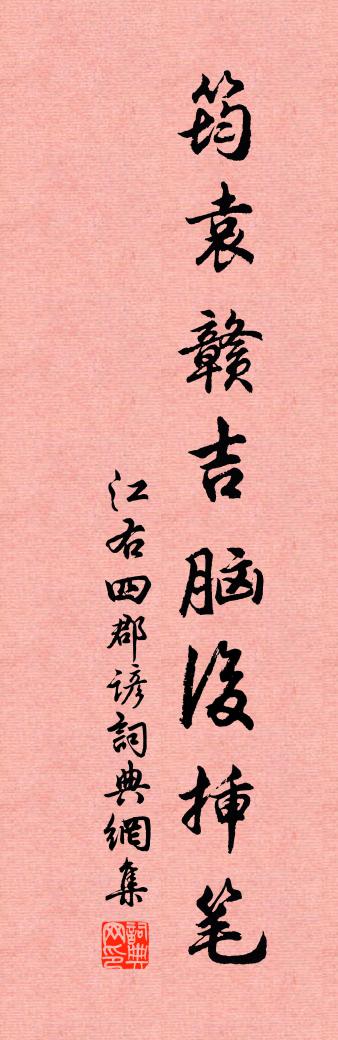 筠袁赣吉脑後插笔
江右四郡谚詞典網集
詞典网印